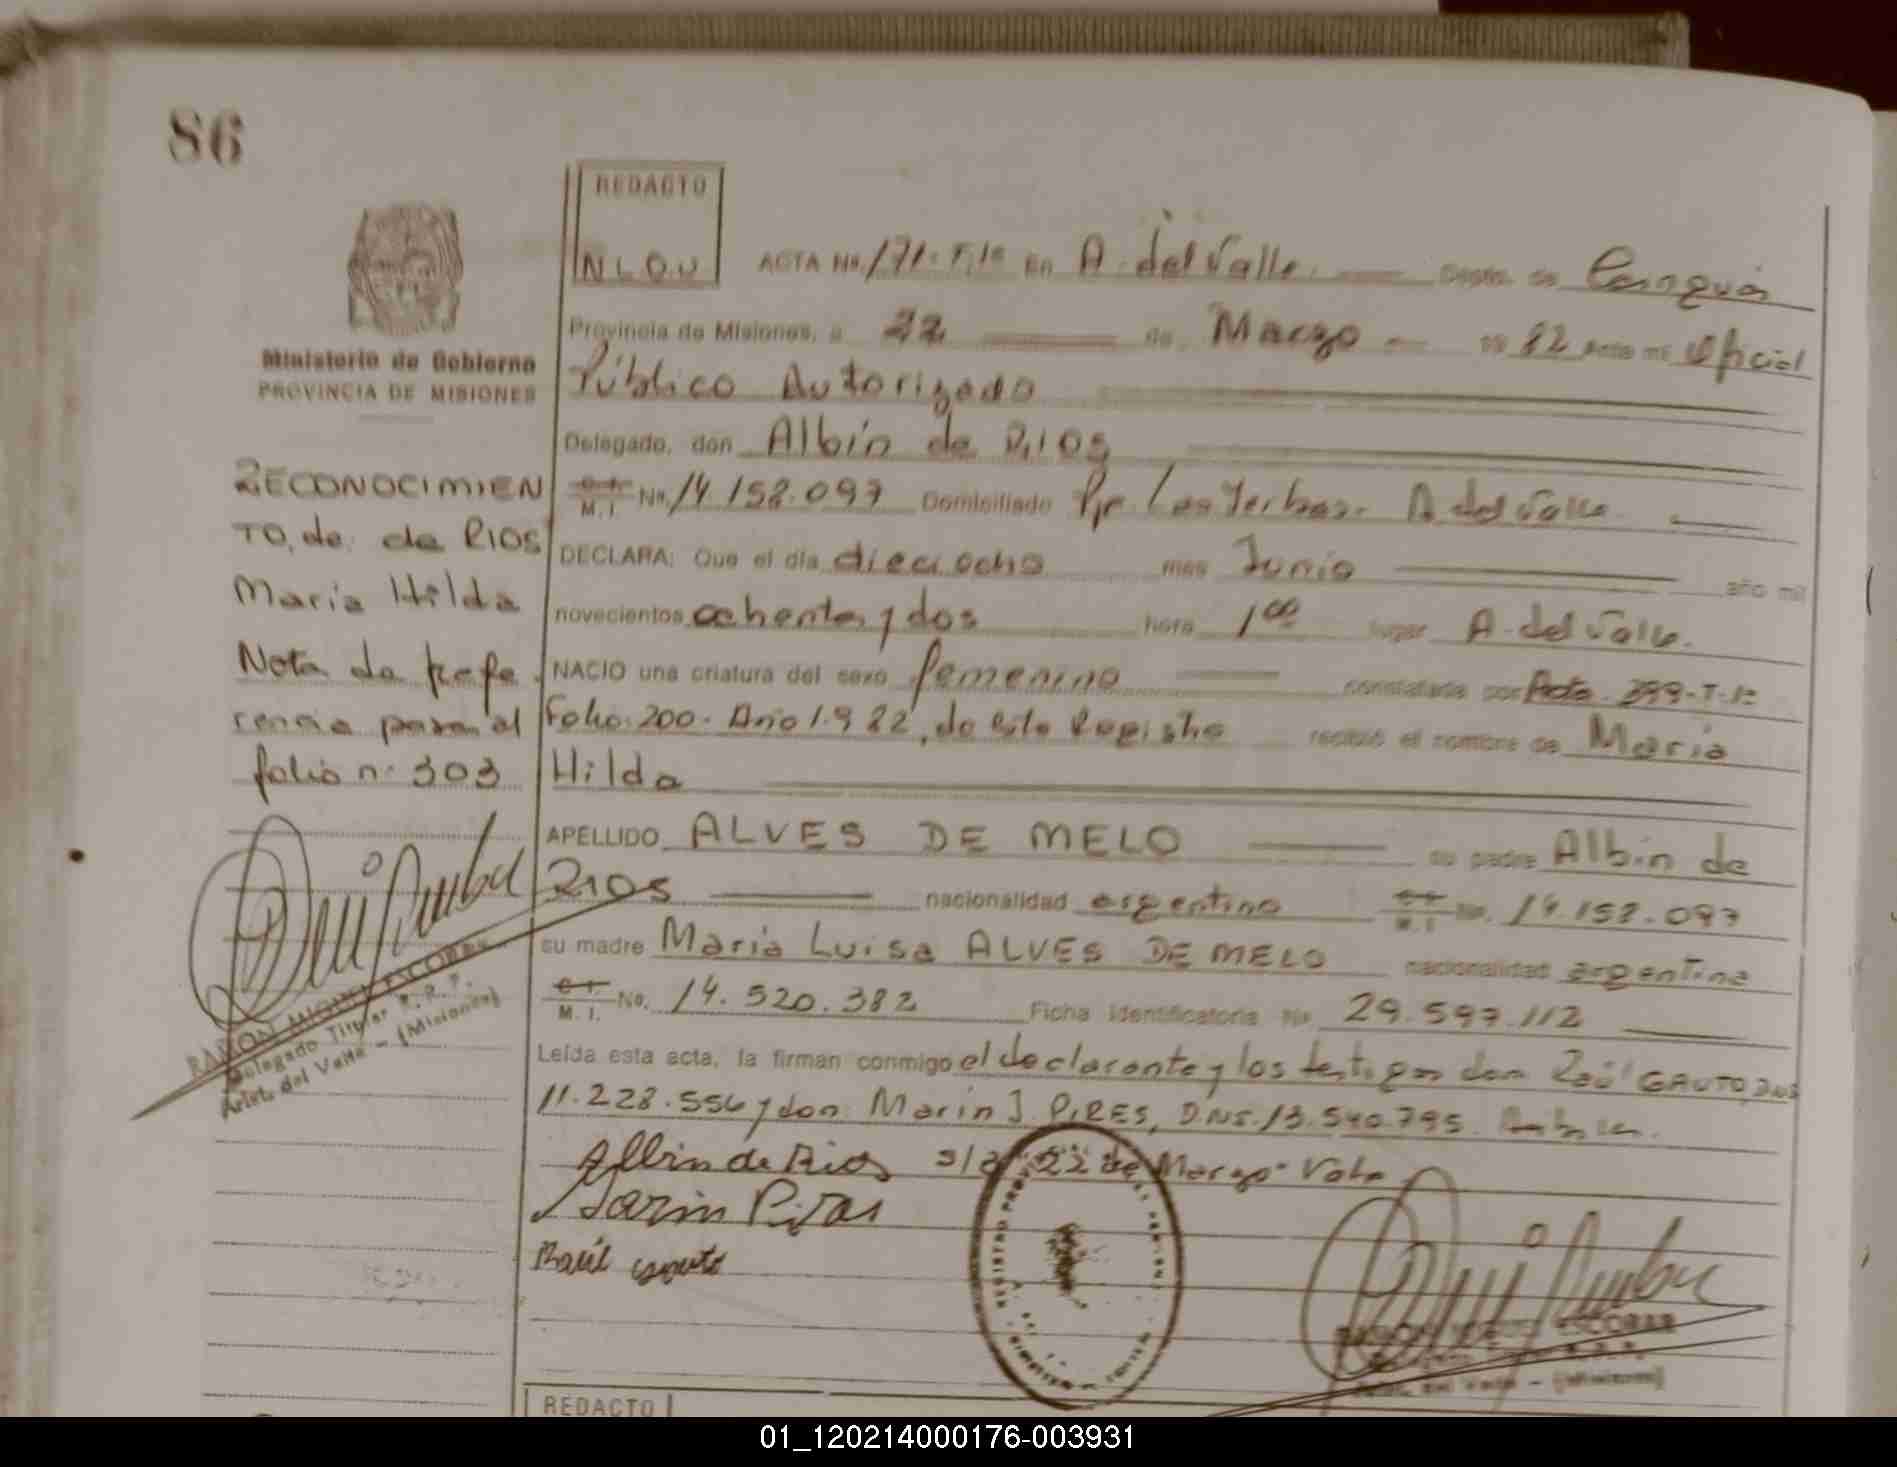 86
REDACTO
NLOU
ACTA No. 171-T.1º En A. del Valle. Depto. de Cainguás
Provincia de Misiones, a 22 de Marzo de 82 Ante mi Oficial
Público Autorizado
Delegado, don Albín de RIOS
C.I. M.I. No. 14.152.097 Domiciliado A. del Valle
DECLARA: Que el día dieciocho mes Junio año mil
novecientos ochenta y dos hora 1 oo lugar A. del Valle.
NACIO una criatura del sexo femenino constatada por Acta 399-T-1º
Folio 200. Año 1.982, de este Registro recibió el nombre de María
Hilda
APELLIDO ALVES DE MELO su padre Albin de
RIOS nacionalidad argentino C.I. M.I No. 14.152.097
su madre María Luisa ALVES DE MELO nacionalidad argentina
C.I. M.I. No. 14.520.382 Ficha Identificatoria No 29.597.112
Leída esta acta, la firman conmigo el declarante y los testigos don Raúl GAUTO, DNI
11.228.556 y don Marín J. PIRES, D.N.I. 13.540.795.
Albin de Rios s/a 22 de Marzo. Vale
Marin Piras
Raúl Gauto
Ministerio de Gobierno
PROVINCIA DE MISIONES
RECONOCIMIEN
TO, de: de RIOS
María Hilda
Nota de refe
rencia pasa al
folio nº 303
RAMON MIGUEL ESCOBAR
Delegado Titular R.R.P.
Arist. del Valle - (Misiones)
RAMON MIGUEL ESCOBAR
del Valle - (Misiones)
REDACTO
01_120214000176-003931